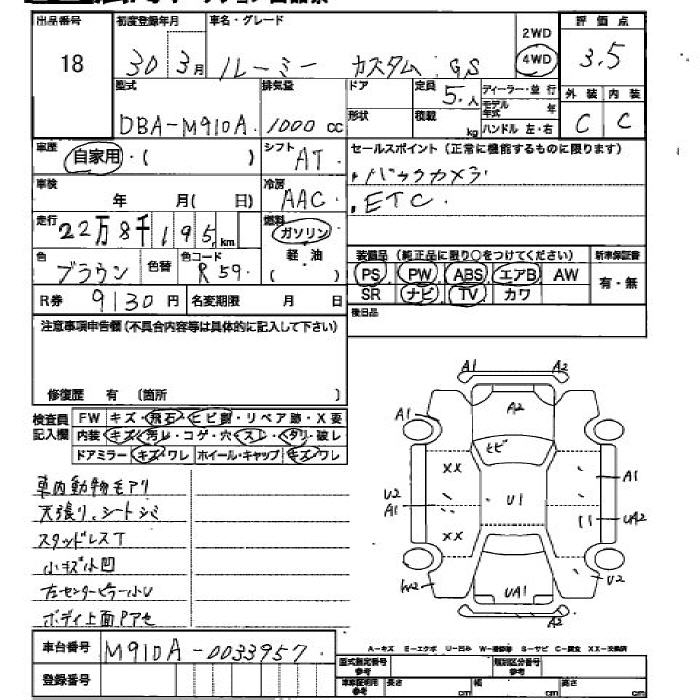 出品番号 初度登録年月 車名・グレード 2WD 評価点
18 30 3月 ルーミー カスタム GS 4WD 3.5
型式 排気量 ドア 定員 5.人 ディーラー・並行 外装 内装
DBA-M910A. 1000 cc 形状 積載 kg モデル年式 年 C C
ハンドル 左・右
車歴 自家用・( ) シフト AT セールスポイント (正常に機能するものに限ります)
車検 年 月( 日) 冷房 AAC ・バックカメラ
走行 22万8千195km 燃料 ガソリン ・ETC.
軽油
( )
色 ブラウン 色替 色コード R59. 装備品 (純正品に限り○をつけてください) 新車保証書
PS PW ABS エアB AW 有・無
R券 9130円 名変期限 月 日 SR ナビ TV カワ
注意事項申告欄(不具合内容等は具体的に記入して下さい) 後日品
修復歴 有 〔箇所 〕
検査員記入欄 FW キズ・飛石・ヒビ割・リペア跡・X要
内装 キズ・汚レ・コゲ・穴・スレ・タリ・破レ
ドアミラー キズ・ワレ ホイール・キャップ キズ・ワレ
車内動物モアリ
天張り、シートシミ
スタッドレスT
小キズ小凹
左センターピラー小U
ボディ上面Pアセ
A1 A2
A1 A2
ヒビ
XX A1
U2 A1 U1 UA2
XX
W2 UA1 U2
A2
車台番号 M910A-0033957.
登録番号
A-キズ E-エクボ U-凹み W-補修等 S-サビ C-腐食 XX-交換済
型式指定番号 参考 類別区分番号 参考
車庫証明用 参考 長さ cm 幅 cm 高さ cm